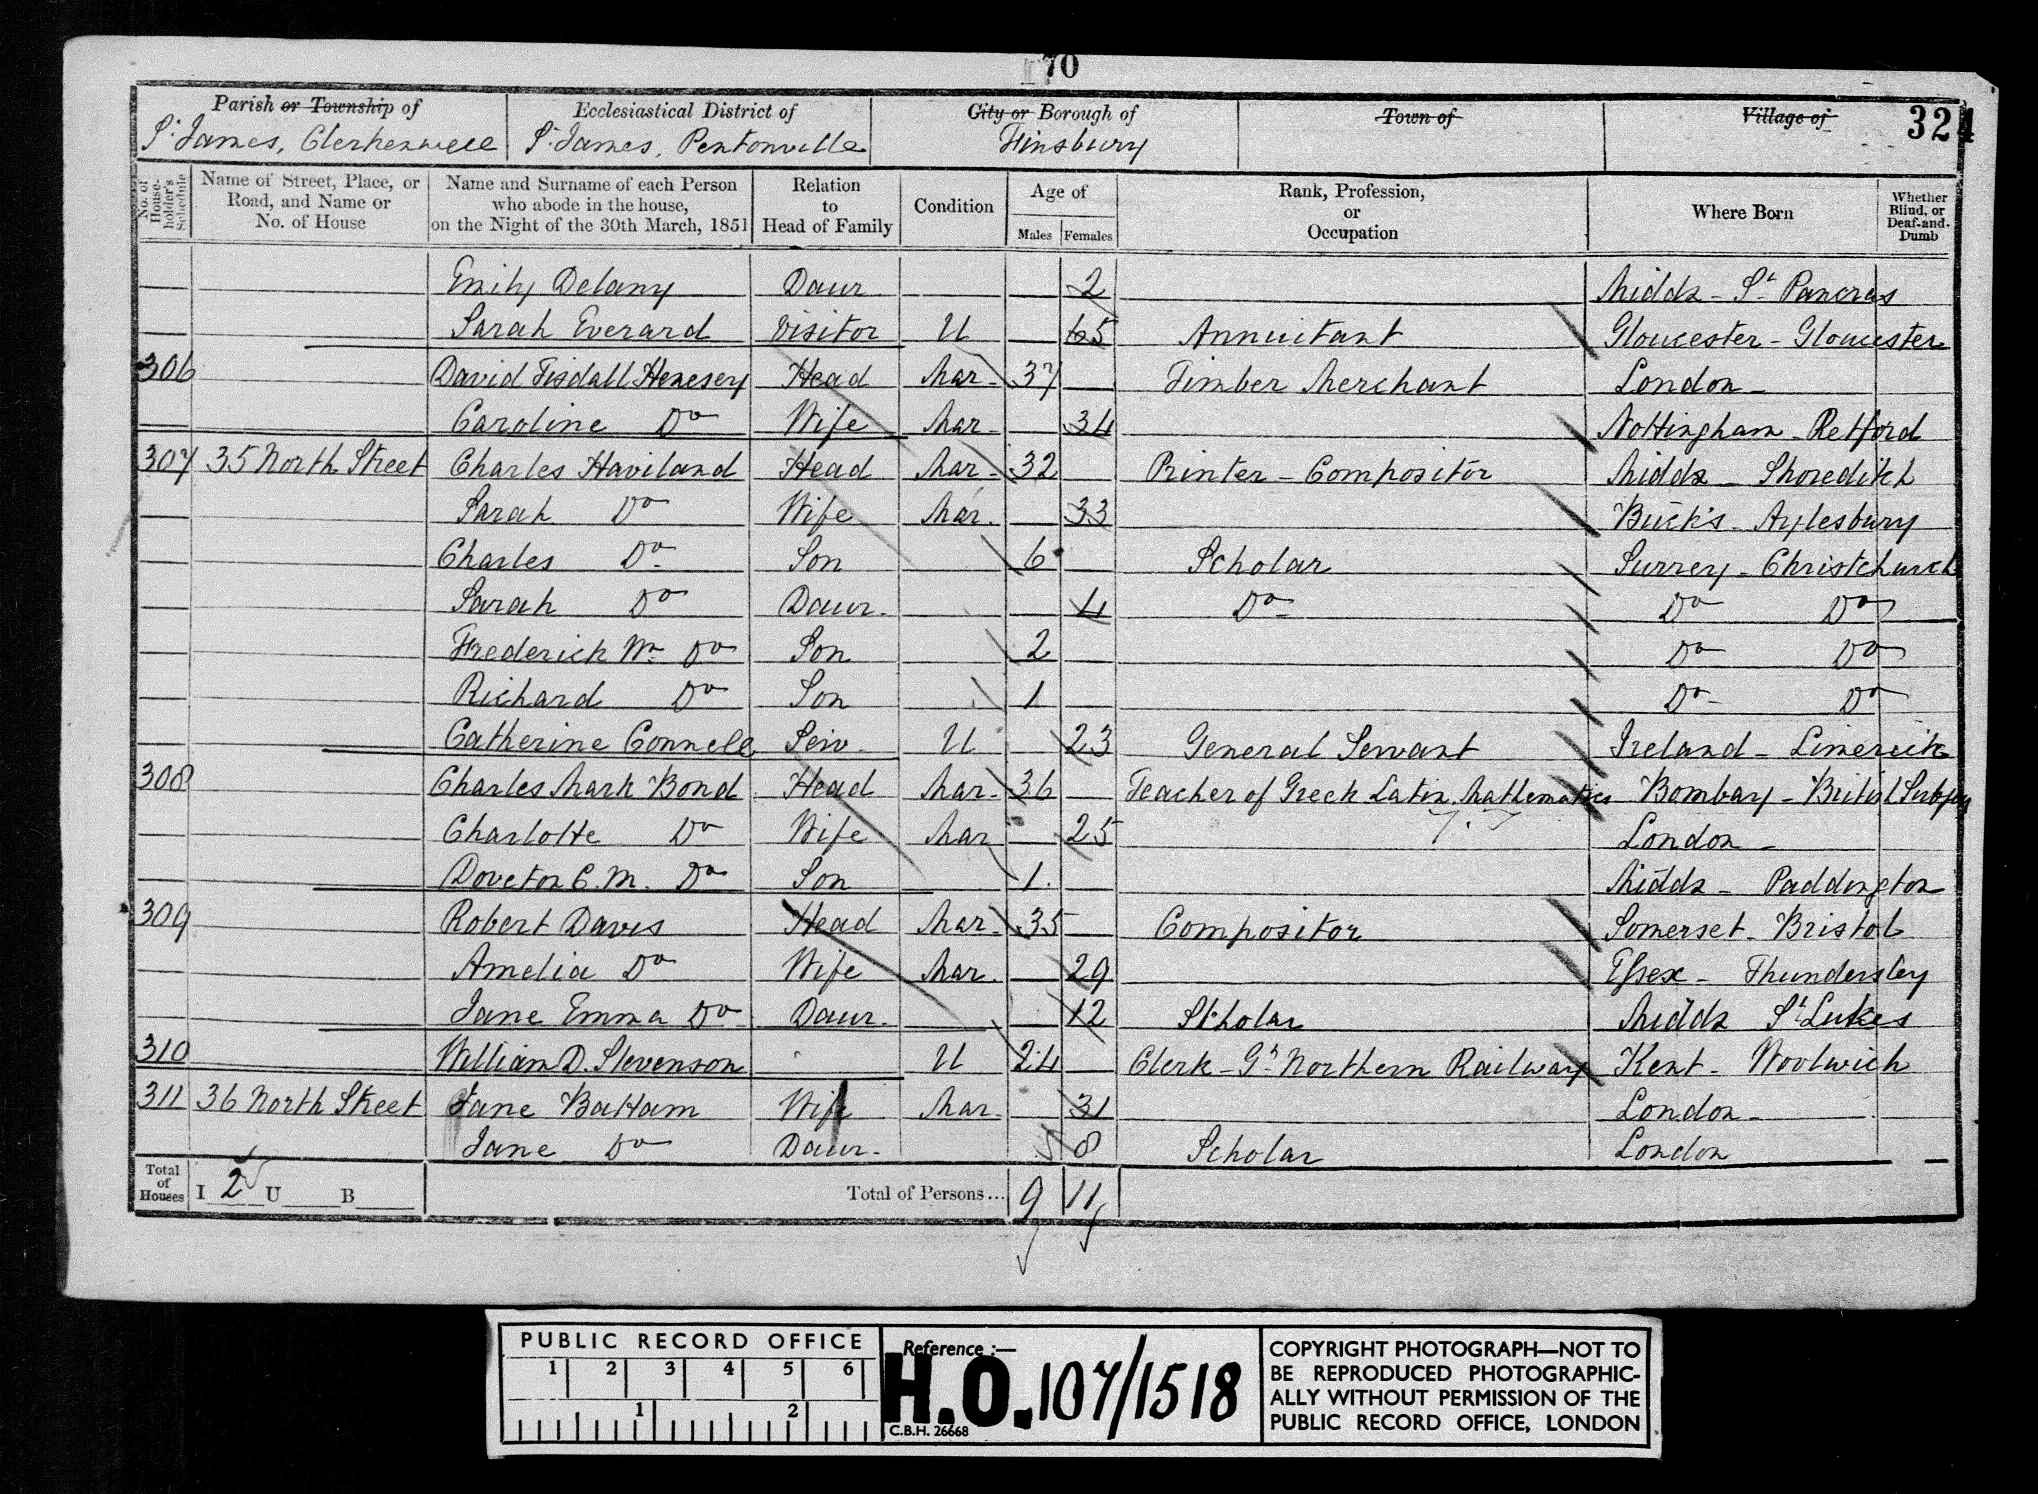 70
Parish or Township of Ecclesiastical District of City or Borough of Town of Village of 324
St. James, Clerkenwell St. James, Pentonville Finsbury
No. of House-holder's Schedule
Name of Street, Place, or Road, and Name or No. of House
Name and Surname of each Person who abode in the house, on the Night of the 30th March, 1851
Relation to Head of Family
Condition
Age of
Males Females
Rank, Profession, or Occupation
Where Born
Whether Blind, or Deaf-and-Dumb
Emily Delany Daur. 2 Middx - St Pancras
Sarah Everard Visitor U 65 Annuitant Gloucester - Gloucester
306 David Tisdall Henesey Head Mar. 37 Timber Merchant London -
Caroline Do Wife Mar. 34 Nottingham - Retford
307 35 North Street Charles Haviland Head Mar. 32 Printer - Compositor Middx - Shoreditch
Sarah Do Wife Mar. 33 Buck's - Aylesbury
Charles Do Son 6 Scholar Surrey - Christchurch
Sarah Do Daur. 4 Do Do Do
Frederick Wm Do Son 2 Do Do
Richard Do Son 1 Do Do
Catherine Connell Serv. U 23 General Servant Ireland - Limerick
308 Charles Mark Bond Head Mar. 36 Teacher of Greek Latin Mathematics Bombay - British Subject
Charlotte Do Wife Mar 25 London -
Doveton C. M. Do Son 1 Middx - Paddington
309 Robert Davis Head Mar. 35 Compositor Somerset - Bristol
Amelia Do Wife Mar. 29 Essex - Thundersley
Jane Emma Do Daur. 12 Scholar Middx St Lukes
310 William D. Stevenson U 24 Clerk - Gt Northern Railway Kent - Woolwich
311 36 North Street Jane Battam Wife Mar. 31 London -
Jane Do Daur. 8 Scholar London
Total of Houses I 2 U B Total of Persons... 9 11
PUBLIC RECORD OFFICE
1 2 3 4 5 6
1 2
Reference :-
H.O. 107/1518
C.B.H. 26668
COPYRIGHT PHOTOGRAPH—NOT TO
BE REPRODUCED PHOTOGRAPHIC-
ALLY WITHOUT PERMISSION OF THE
PUBLIC RECORD OFFICE, LONDON